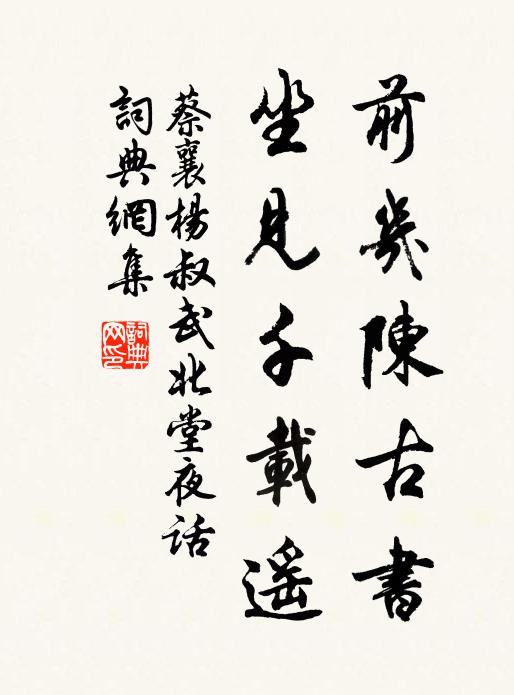 前幾陳古書
坐見千載遥
蔡襄楊叔武北堂夜話
詞典網集
詞典網印